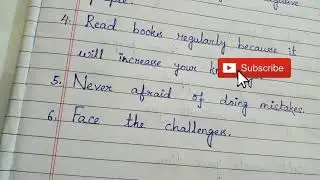 people.
4. Read books regularly because it
will increase your
Subscribe
5. Never afraid of doing mistakes.
6. Face the challengers.